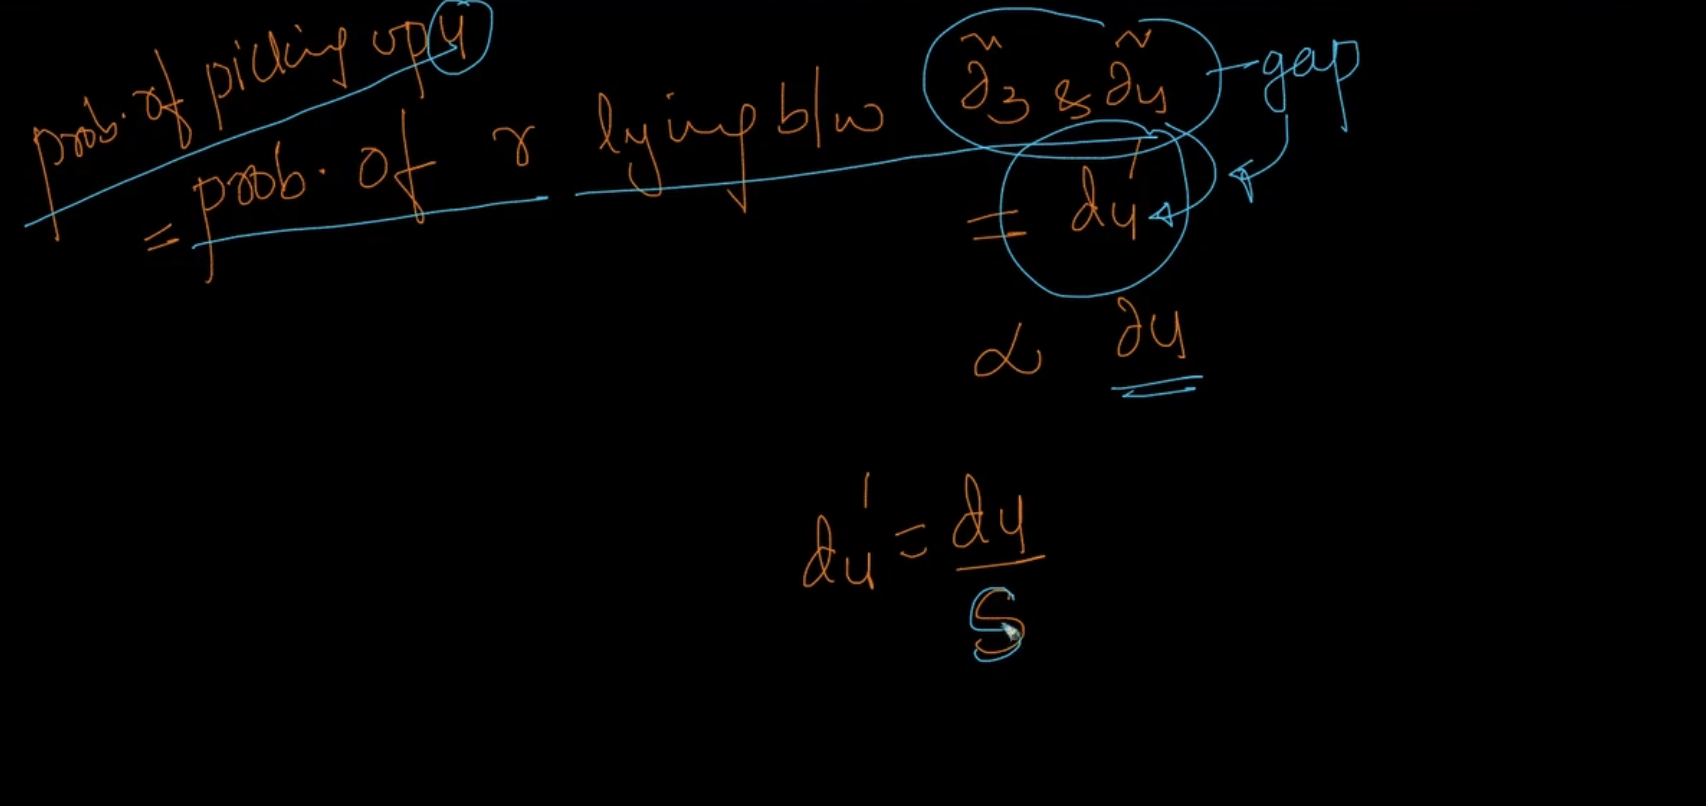 prob. of picking up 4
= prob. of r lying b/w d̃3 & d̃4 - gap
= d4'
∝ d4
d4' = d4 / S